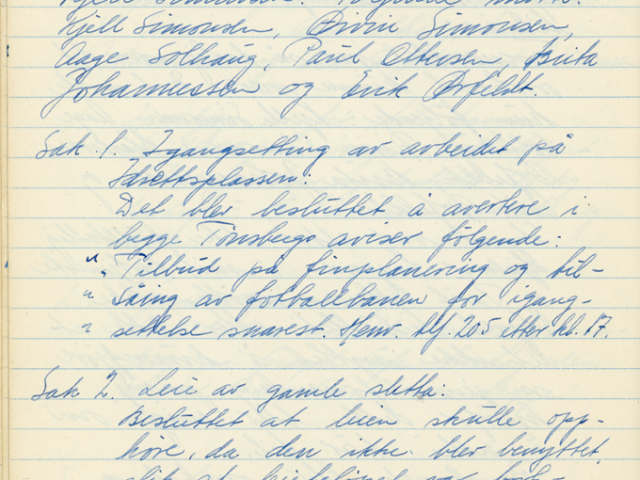 Kjell Simonsen, Øivin Simonsen,
Aage Solhaug, Paul Ottersen, Brita
Johannessen og Erik Ørfeldt.
Sak 1. Igangsetting av arbeidet på
Idrettsplassen:
Det blev besluttet å avertere i
begge Tønsbergs aviser følgende:
" „ Tilbud på finplanering og til-
" såing av fotballbanen for igang-
" settelse snarest. Henv. tlf. 205 etter kl. 17.
Sak 2. Leie av gamle sletta:
Besluttet at leien skulle opp-
høre, da den ikke blev benyttet,
slik at